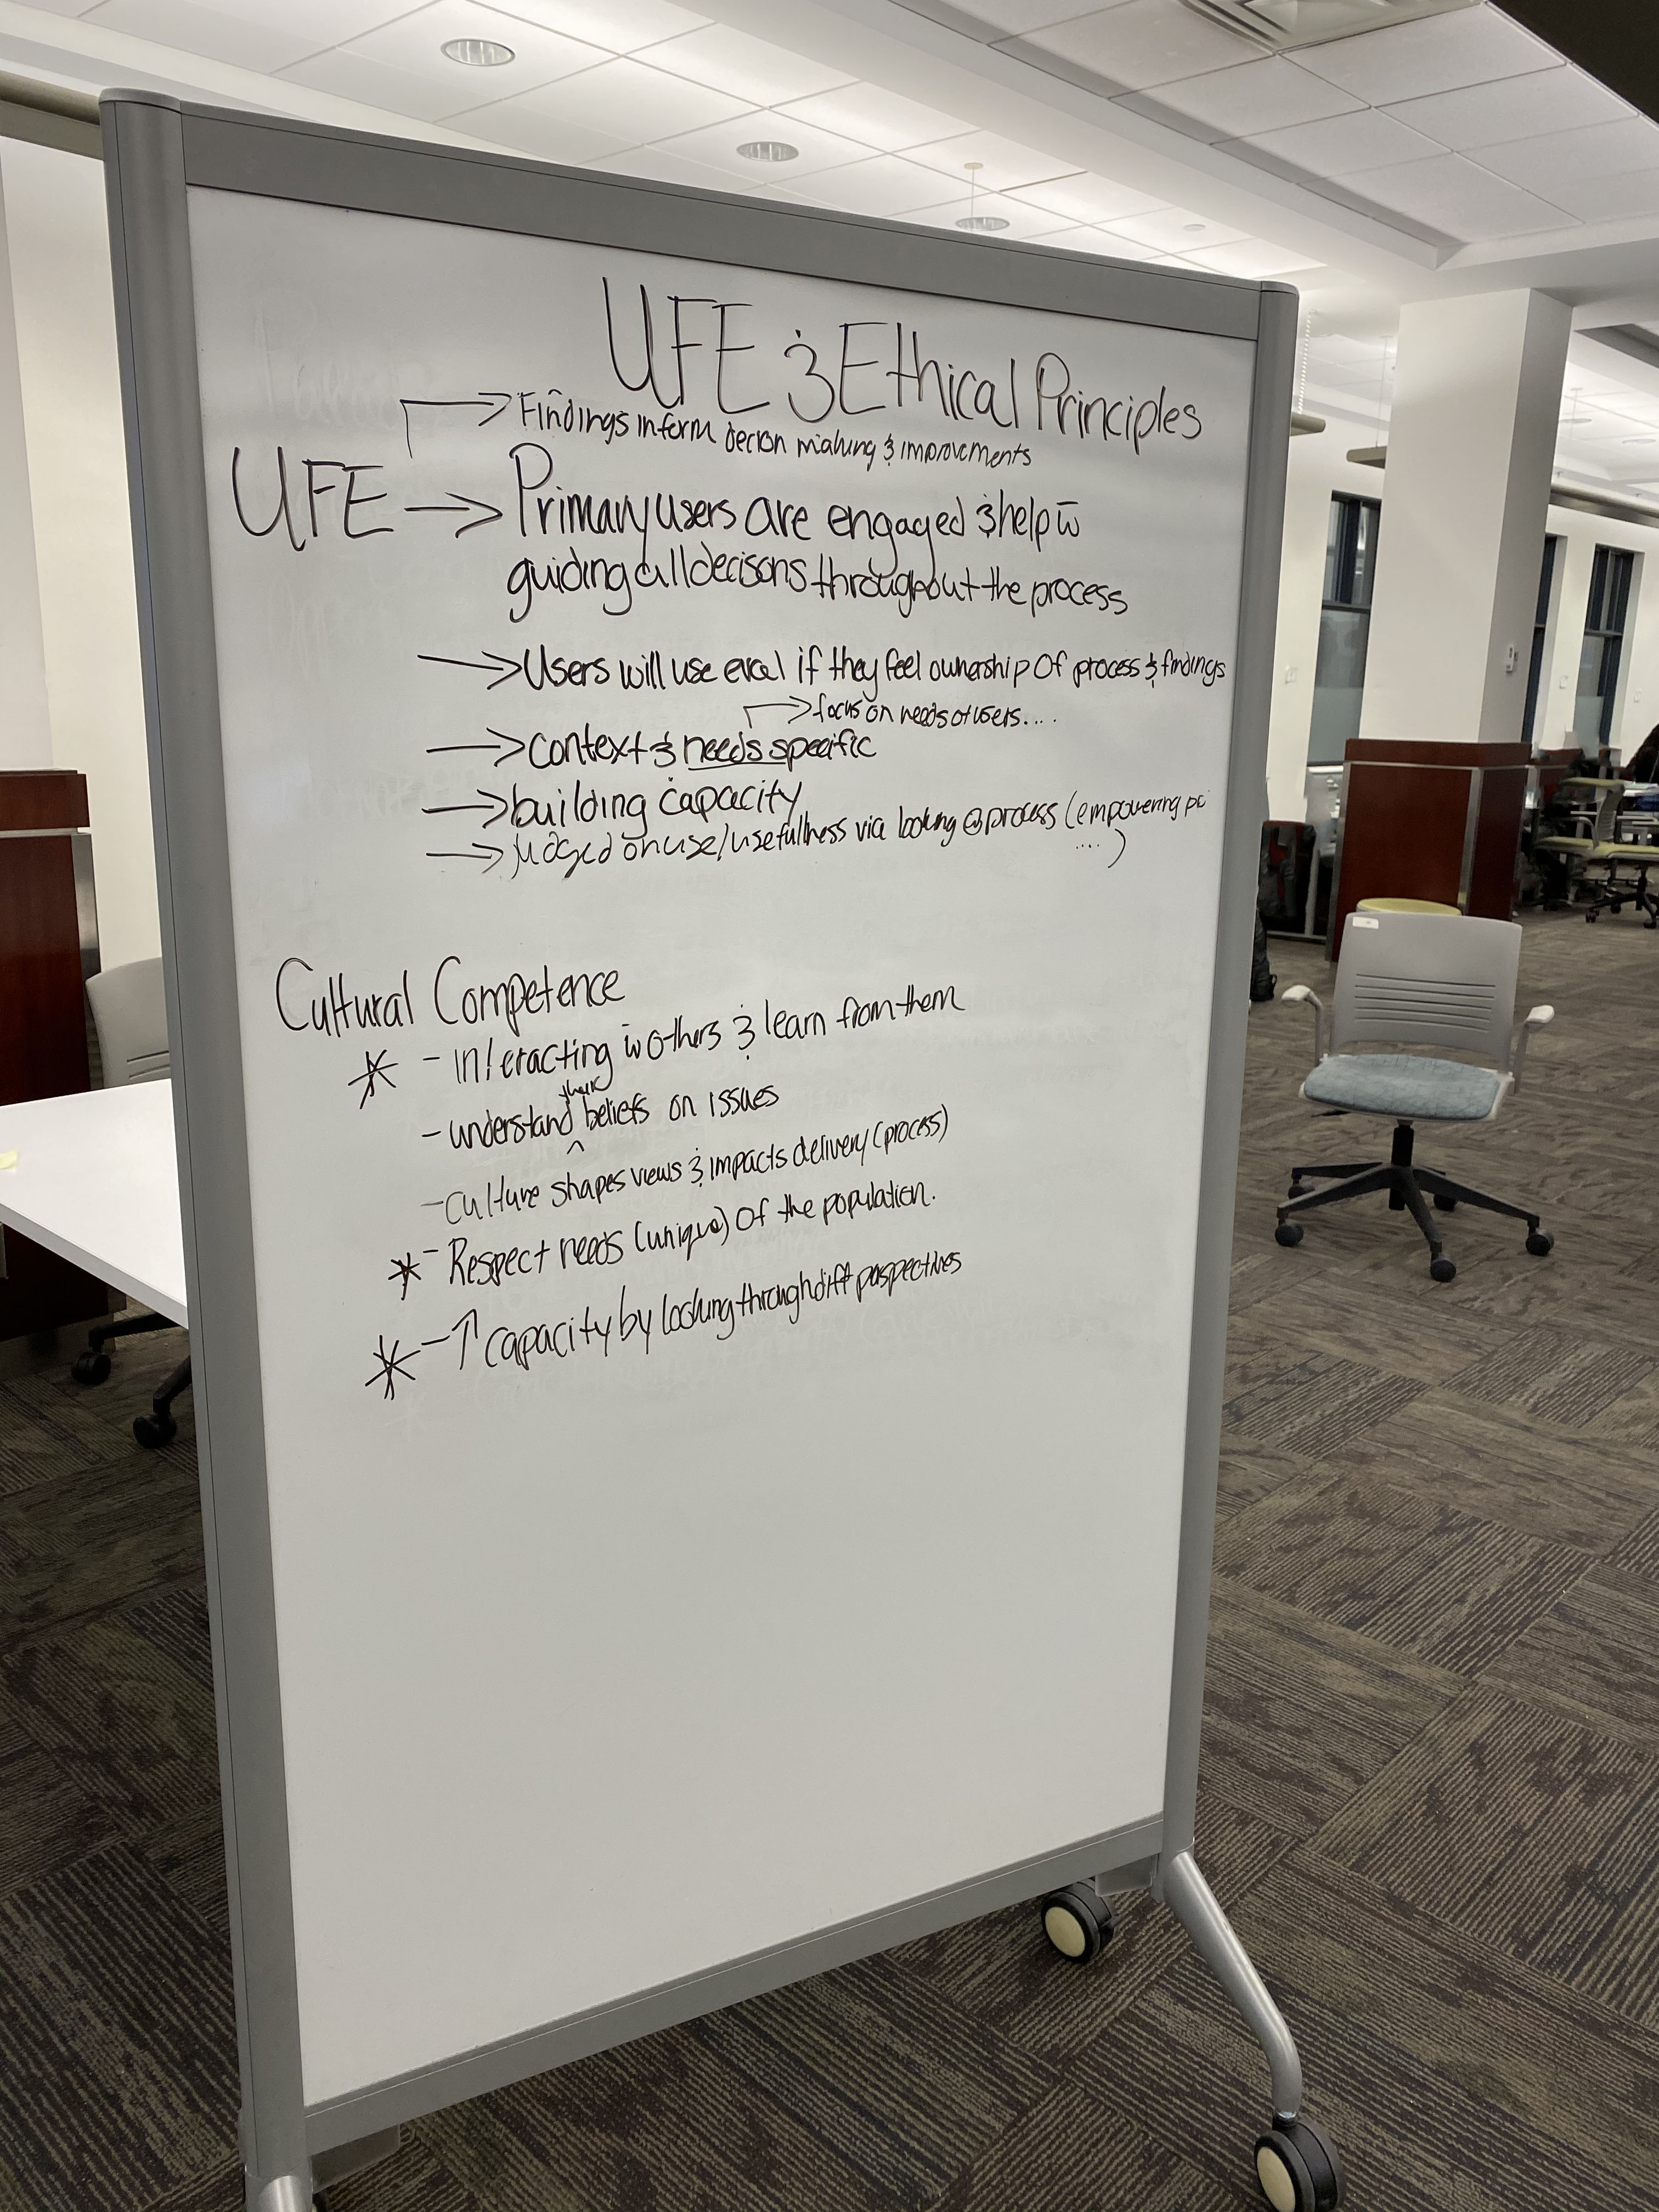 UFE & Ethical Principles
→ Findings inform decison making & improvements
UFE → Primary users are engaged & help w̄
guiding all decisons throughout the process
→ Users will use eval if they feel ownership of process & findings
→ focus on needs of users....
→ Context & needs specific
→ building capacity
→ judged on use/usefullness via looking @ process (empowering
....)
Cultural Competence
* - Interacting w̄ others & learn from them
their
- understand ^ beliefs on issues
- Culture shapes views & impacts delivery (process)
* - Respect needs (unique) of the population.
* - ↑ capacity by looking through diff perspectives